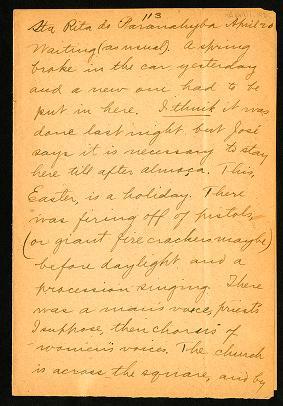 113
Sta Rita do Paranahyba April 20
Waiting (as usual). A spring
broke in the car yesterday
and a new one had to be
put in here. I think it was
done last night but José
says it is necessary to stay
here till after almoça. This,
Easter, is a holiday. There
was firing off of pistols
(or giant fire crackers maybe)
before daylight and a
procession singing. There
was a man's voice, priests
I suppose, then chorus of
women's voices. The church
is across the square, and by